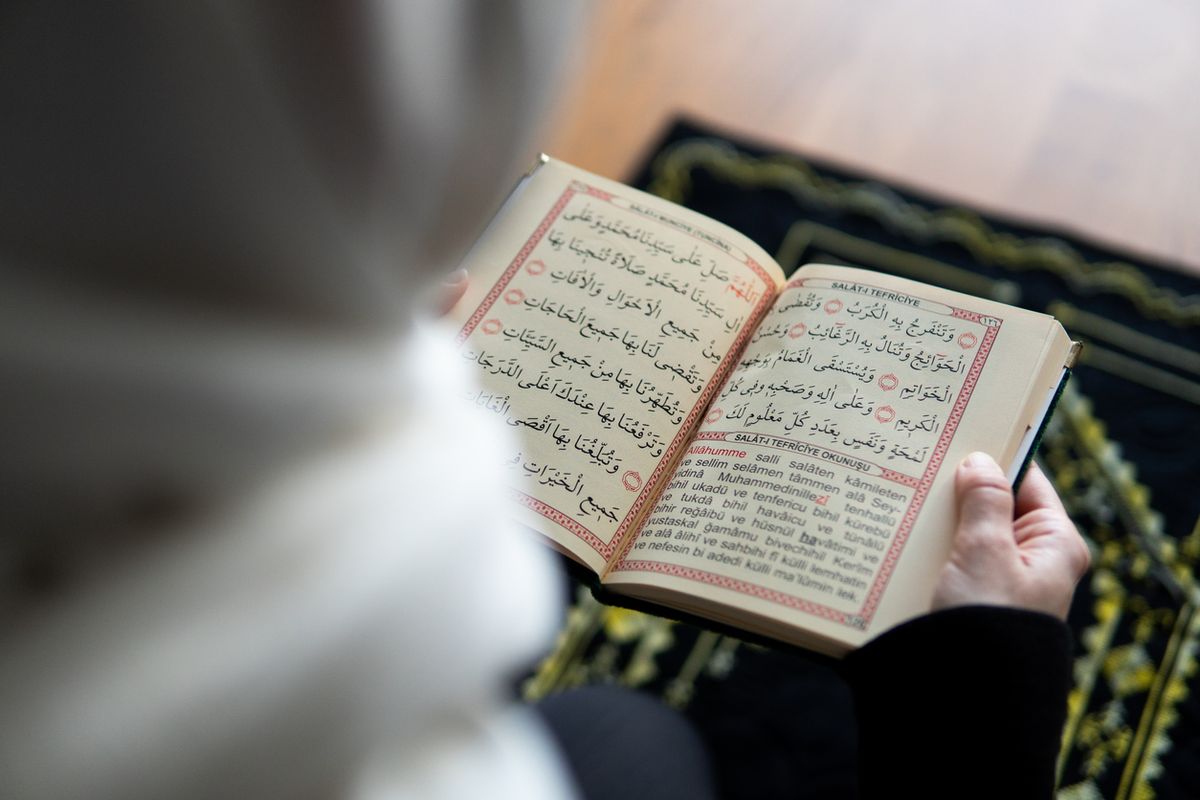 SALÂT-I TEFRÎCİYE
وَتَنْفَرِجُ بِهِ الْكُرَبُ وَتُقْضٰى
الْحَوَائِجُ وَتُنَالُ بِهِ الرَّغَائِبُ وَحُسْنُ
الْخَوَاتِمِ وَيُسْتَسْقَى الْغَمَامُ بِوَجْهِهِ
الْكَرِيمِ وَعَلٰى اٰلِهِ وَصَحْبِهِ فِى كُلِّ
لَمْحَةٍ وَنَفَسٍ بِعَدَدِ كُلِّ مَعْلُومٍ لَكَ
SALÂT-I TEFRÎCİYE OKUNUŞU
Allâhumme salli salâten kâmileten
ve sellim selâmen tâmmen alâ Sey-
yidinâ Muhammedinillezî tenhallü
bihil ukadü ve tenfericu bihil kürebü
ve tukdâ bihil havâicu ve tünâlü
bihir reğâibü ve hüsnül havâtimi ve
yustaskal ğamâmu bivechihil Kerîm
ve alâ âlihî ve sahbihî fî külli lemhatin
ve nefesin bi adedi külli ma'lûmin lek.
SALÂT-I MÜNCİYE (TÜNCÎNA)
اَللّٰهُمَّ صَلِّ عَلٰى سَيِّدِنَا مُحَمَّدٍ وَعَلٰى
اٰلِ سَيِّدِنَا مُحَمَّدٍ صَلَاةً تُنْجِينَا بِهَا
مِنْ جَمِيعِ الْاَحْوَالِ وَالْاٰفَاتِ
وَتَقْضِى لَنَا بِهَا جَمِيعَ الْحَاجَاتِ
وَتُطَهِّرُنَا بِهَا مِنْ جَمِيعِ السَّيِّئَاتِ
وَتَرْفَعُنَا بِهَا عِنْدَكَ اَعْلَى الدَّرَجَاتِ
وَتُبَلِّغُنَا بِهَا اَقْصَى الْغَايَاتِ
جَمِيعِ الْخَيْرَاتِ فِى